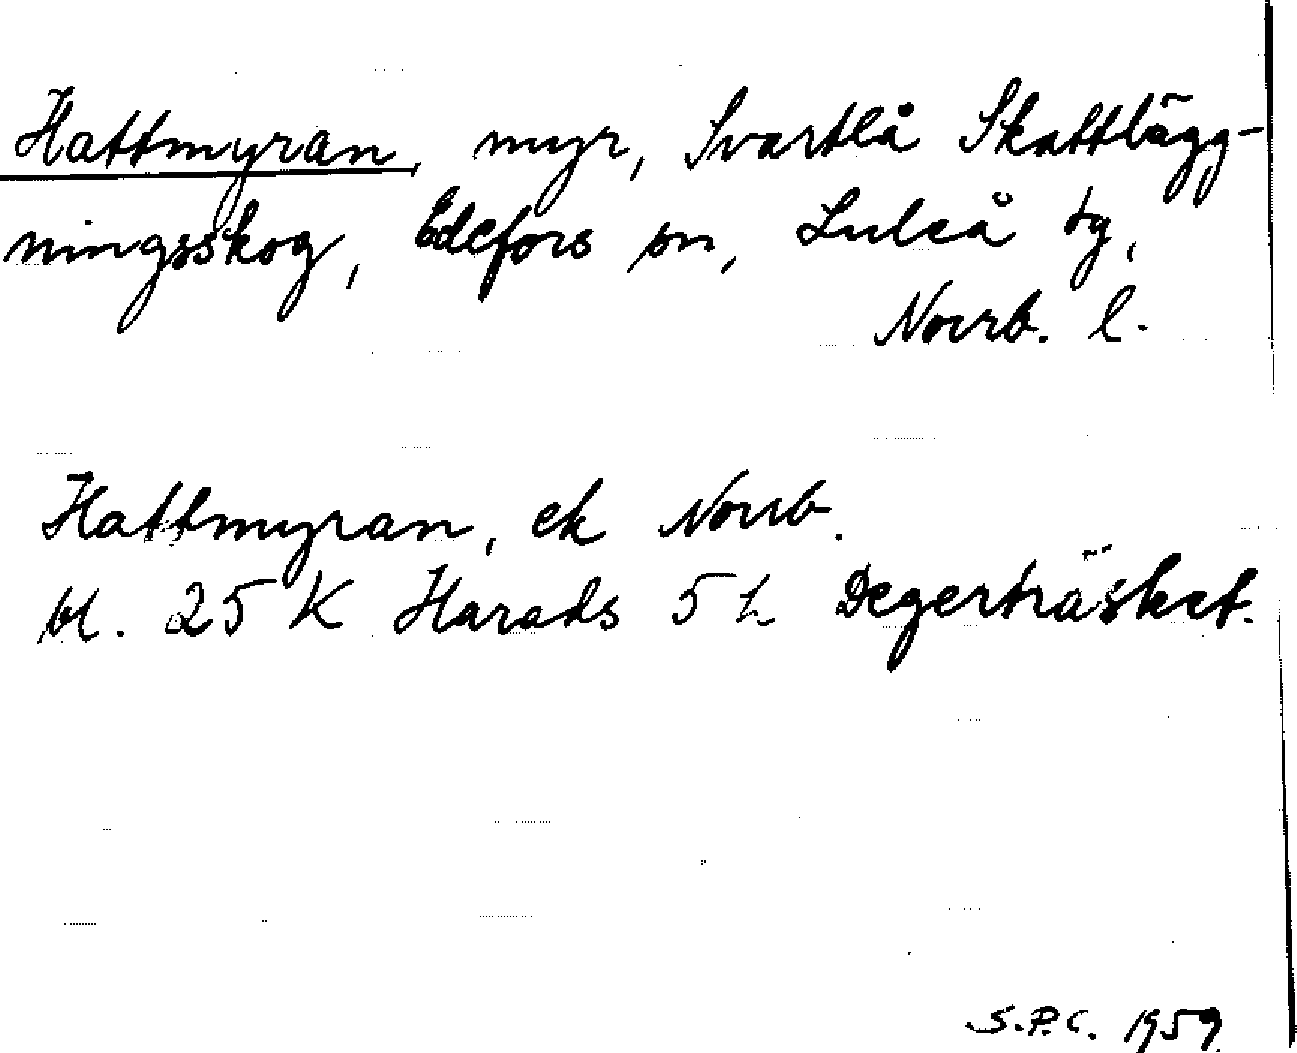 Hattmyran, myr, Svartlå Skattlägg-
ningsskog, Edefors sn, Luleå tg,
Norrb. l.
Hattmyran, ek Norrb.
bl. 25 K Harads 5 h Degerträsket.
S.P.C. 1959